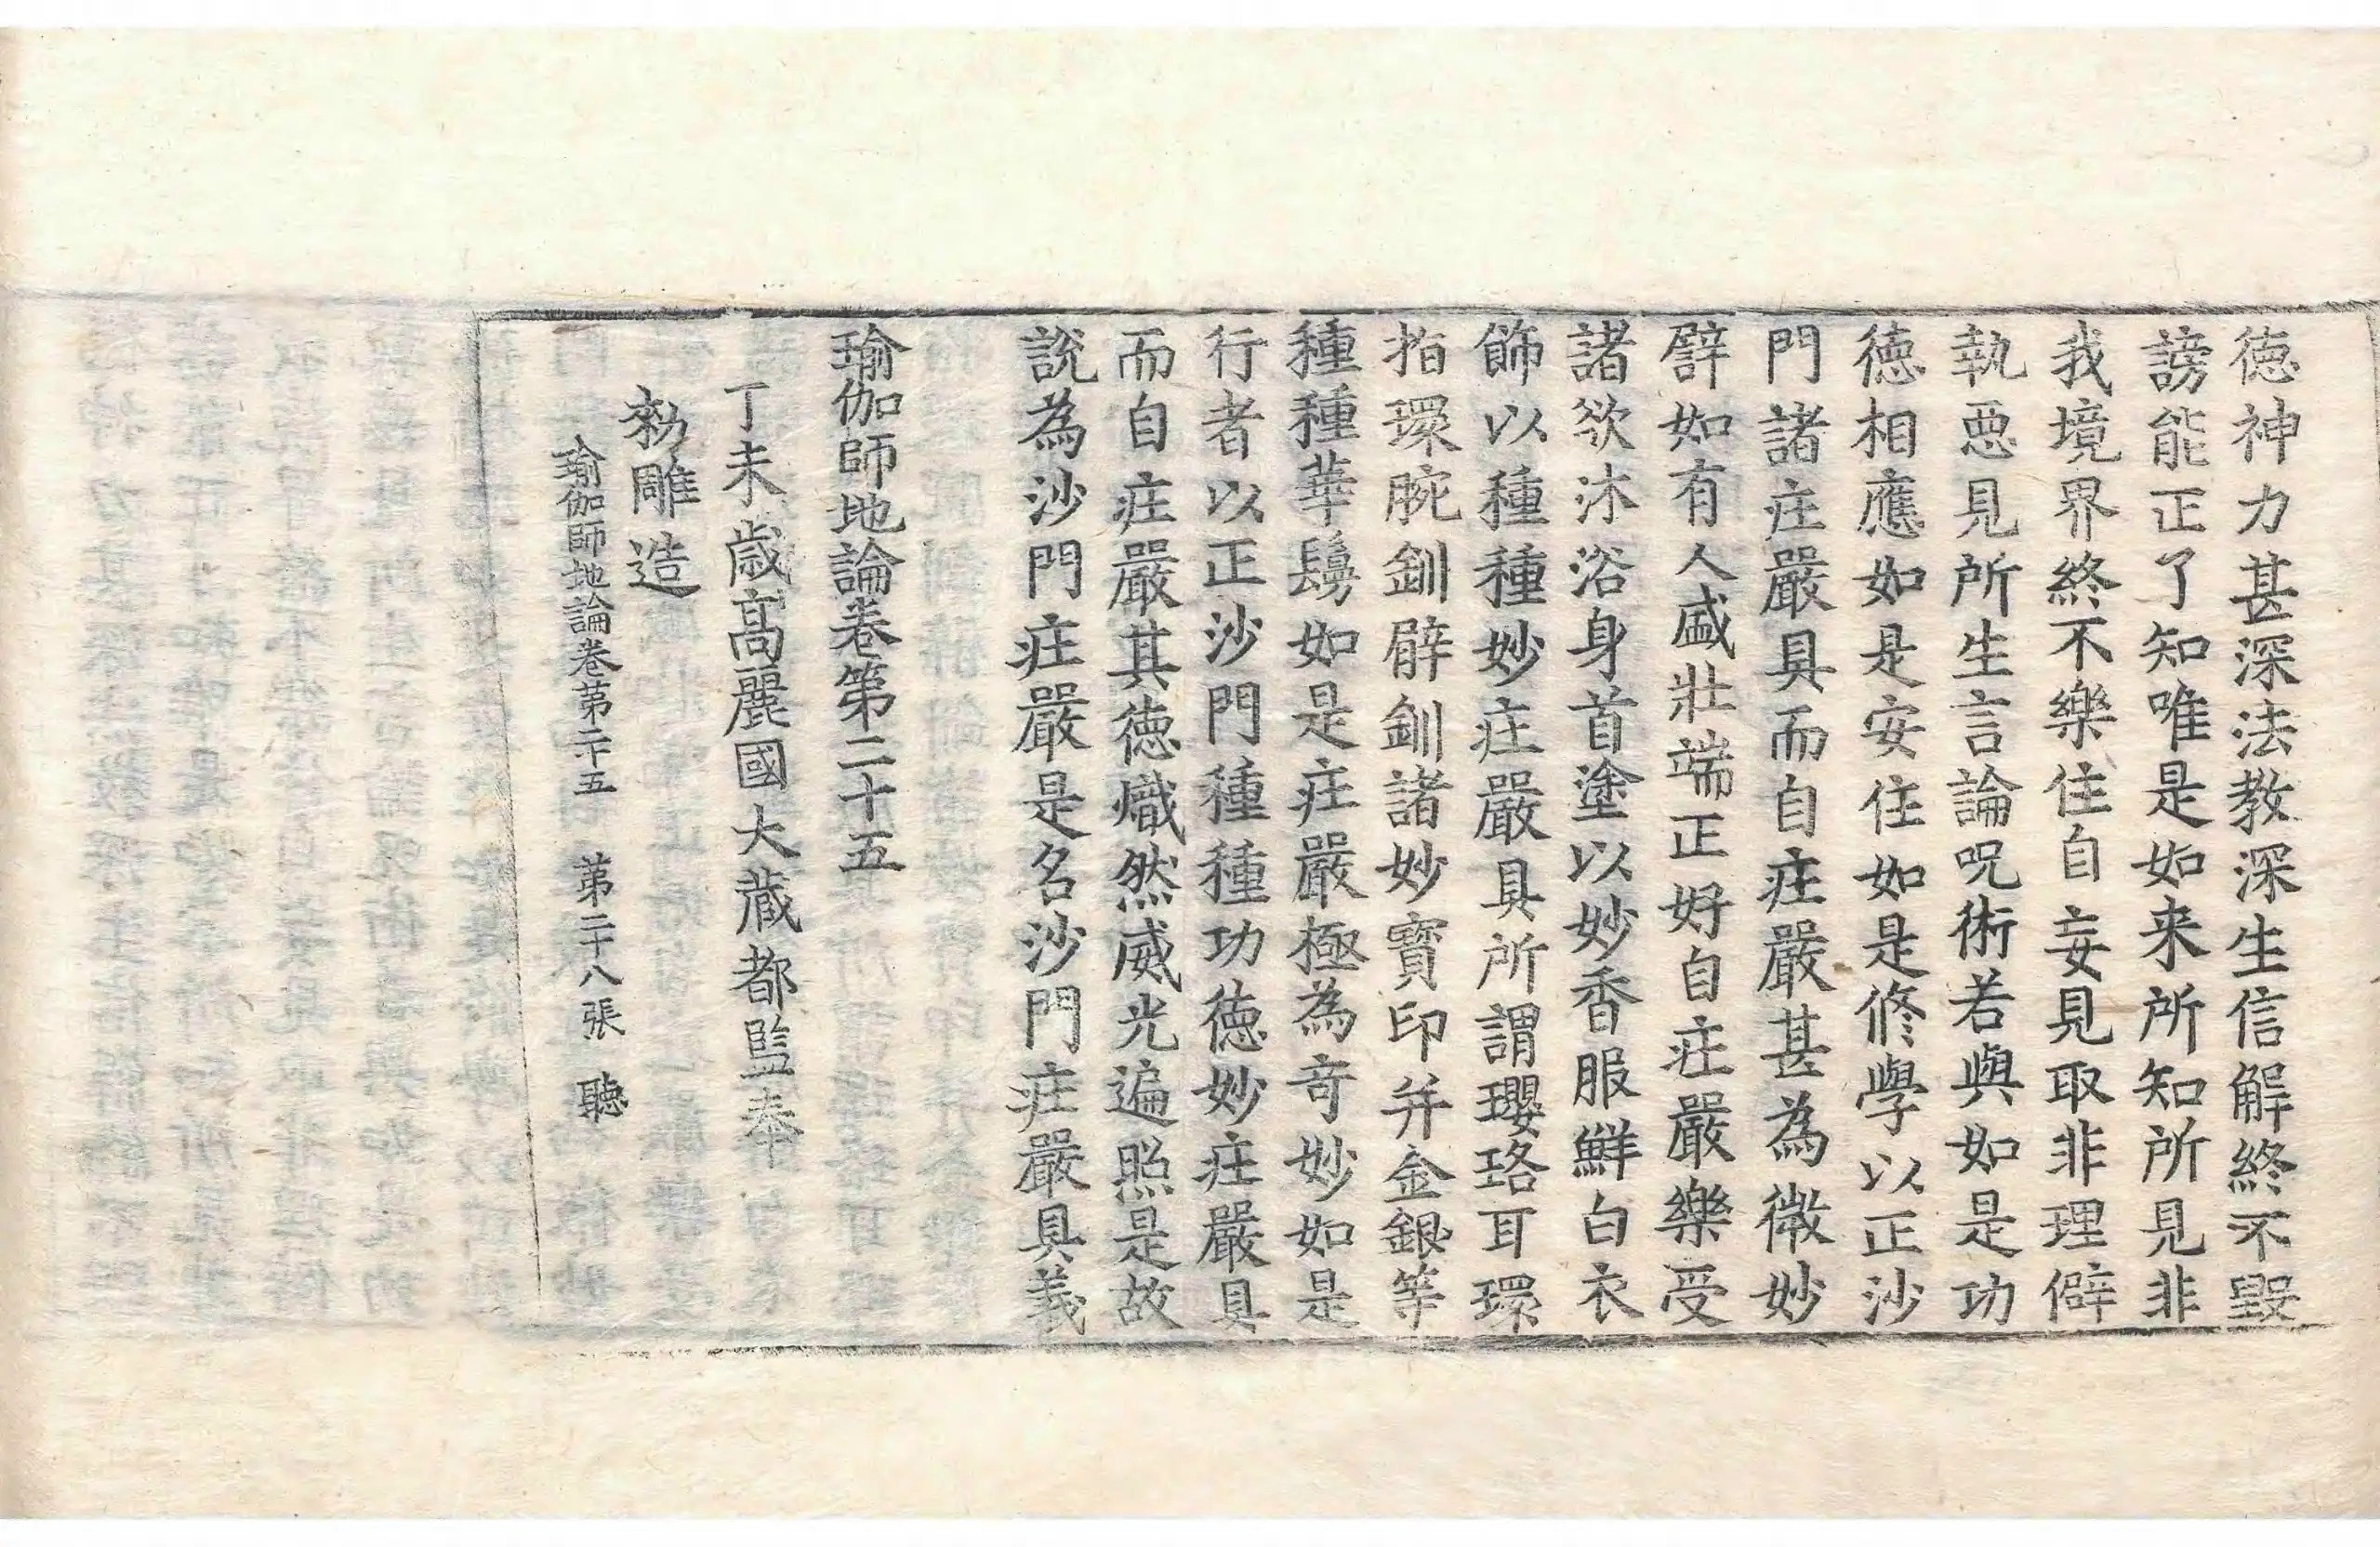 德神力甚深法教深生信解終不毀
謗能正了知唯是如来所知所見非
我境界終不樂住自妄見取非理僻
執惡見所生言論呪術若與如是功
德相應如是安住如是修學以正沙
門諸庄嚴具而自庄嚴甚為微妙
譬如有人盛壯端正好自庄嚴樂受
諸欲沐浴身首塗以妙香服鮮白衣
飾以種種妙庄嚴具所謂瓔珞耳環
指環腕釧臂釧諸妙寶印并金銀等
種種華鬘如是庄嚴極為奇妙如是
行者以正沙門種種功德妙庄嚴具
而自庄嚴其德熾然威光遍照是故
說為沙門庄嚴是名沙門庄嚴具義
瑜伽師地論卷第二十五
丁未歲高麗國大藏都監奉
勑雕造
瑜伽師地論卷第二十五 第二十八張 聽